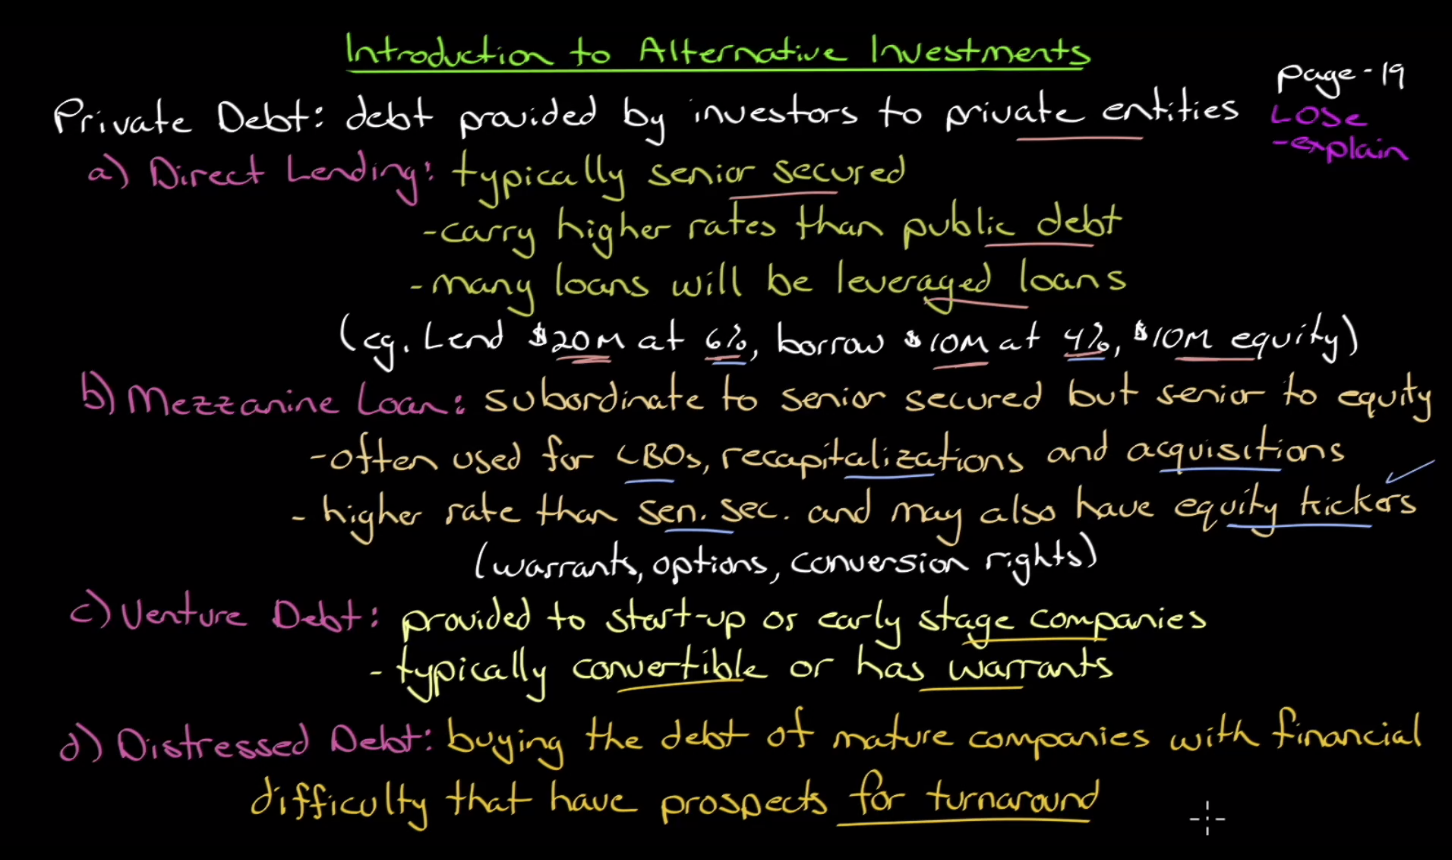 Introduction to Alternative Investments
page-19
Private Debt: debt provided by investors to private entities
LOSe
-explain
a) Direct Lending: typically senior secured
-carry higher rates than public debt
-many loans will be leveraged loans
(eg. Lend $20M at 6%, borrow $10M at 4%, $10M equity)
b) Mezzanine Loan: subordinate to senior secured but senior to equity
-often used for LBOs, recapitalizations and acquisitions
- higher rate than sen. sec. and may also have equity kickers
(warrants, options, conversion rights)
c) Venture Debt: provided to start-up or early stage companies
- typically convertible or has warrants
d) Distressed Debt: buying the debt of mature companies with financial
difficulty that have prospects for turnaround